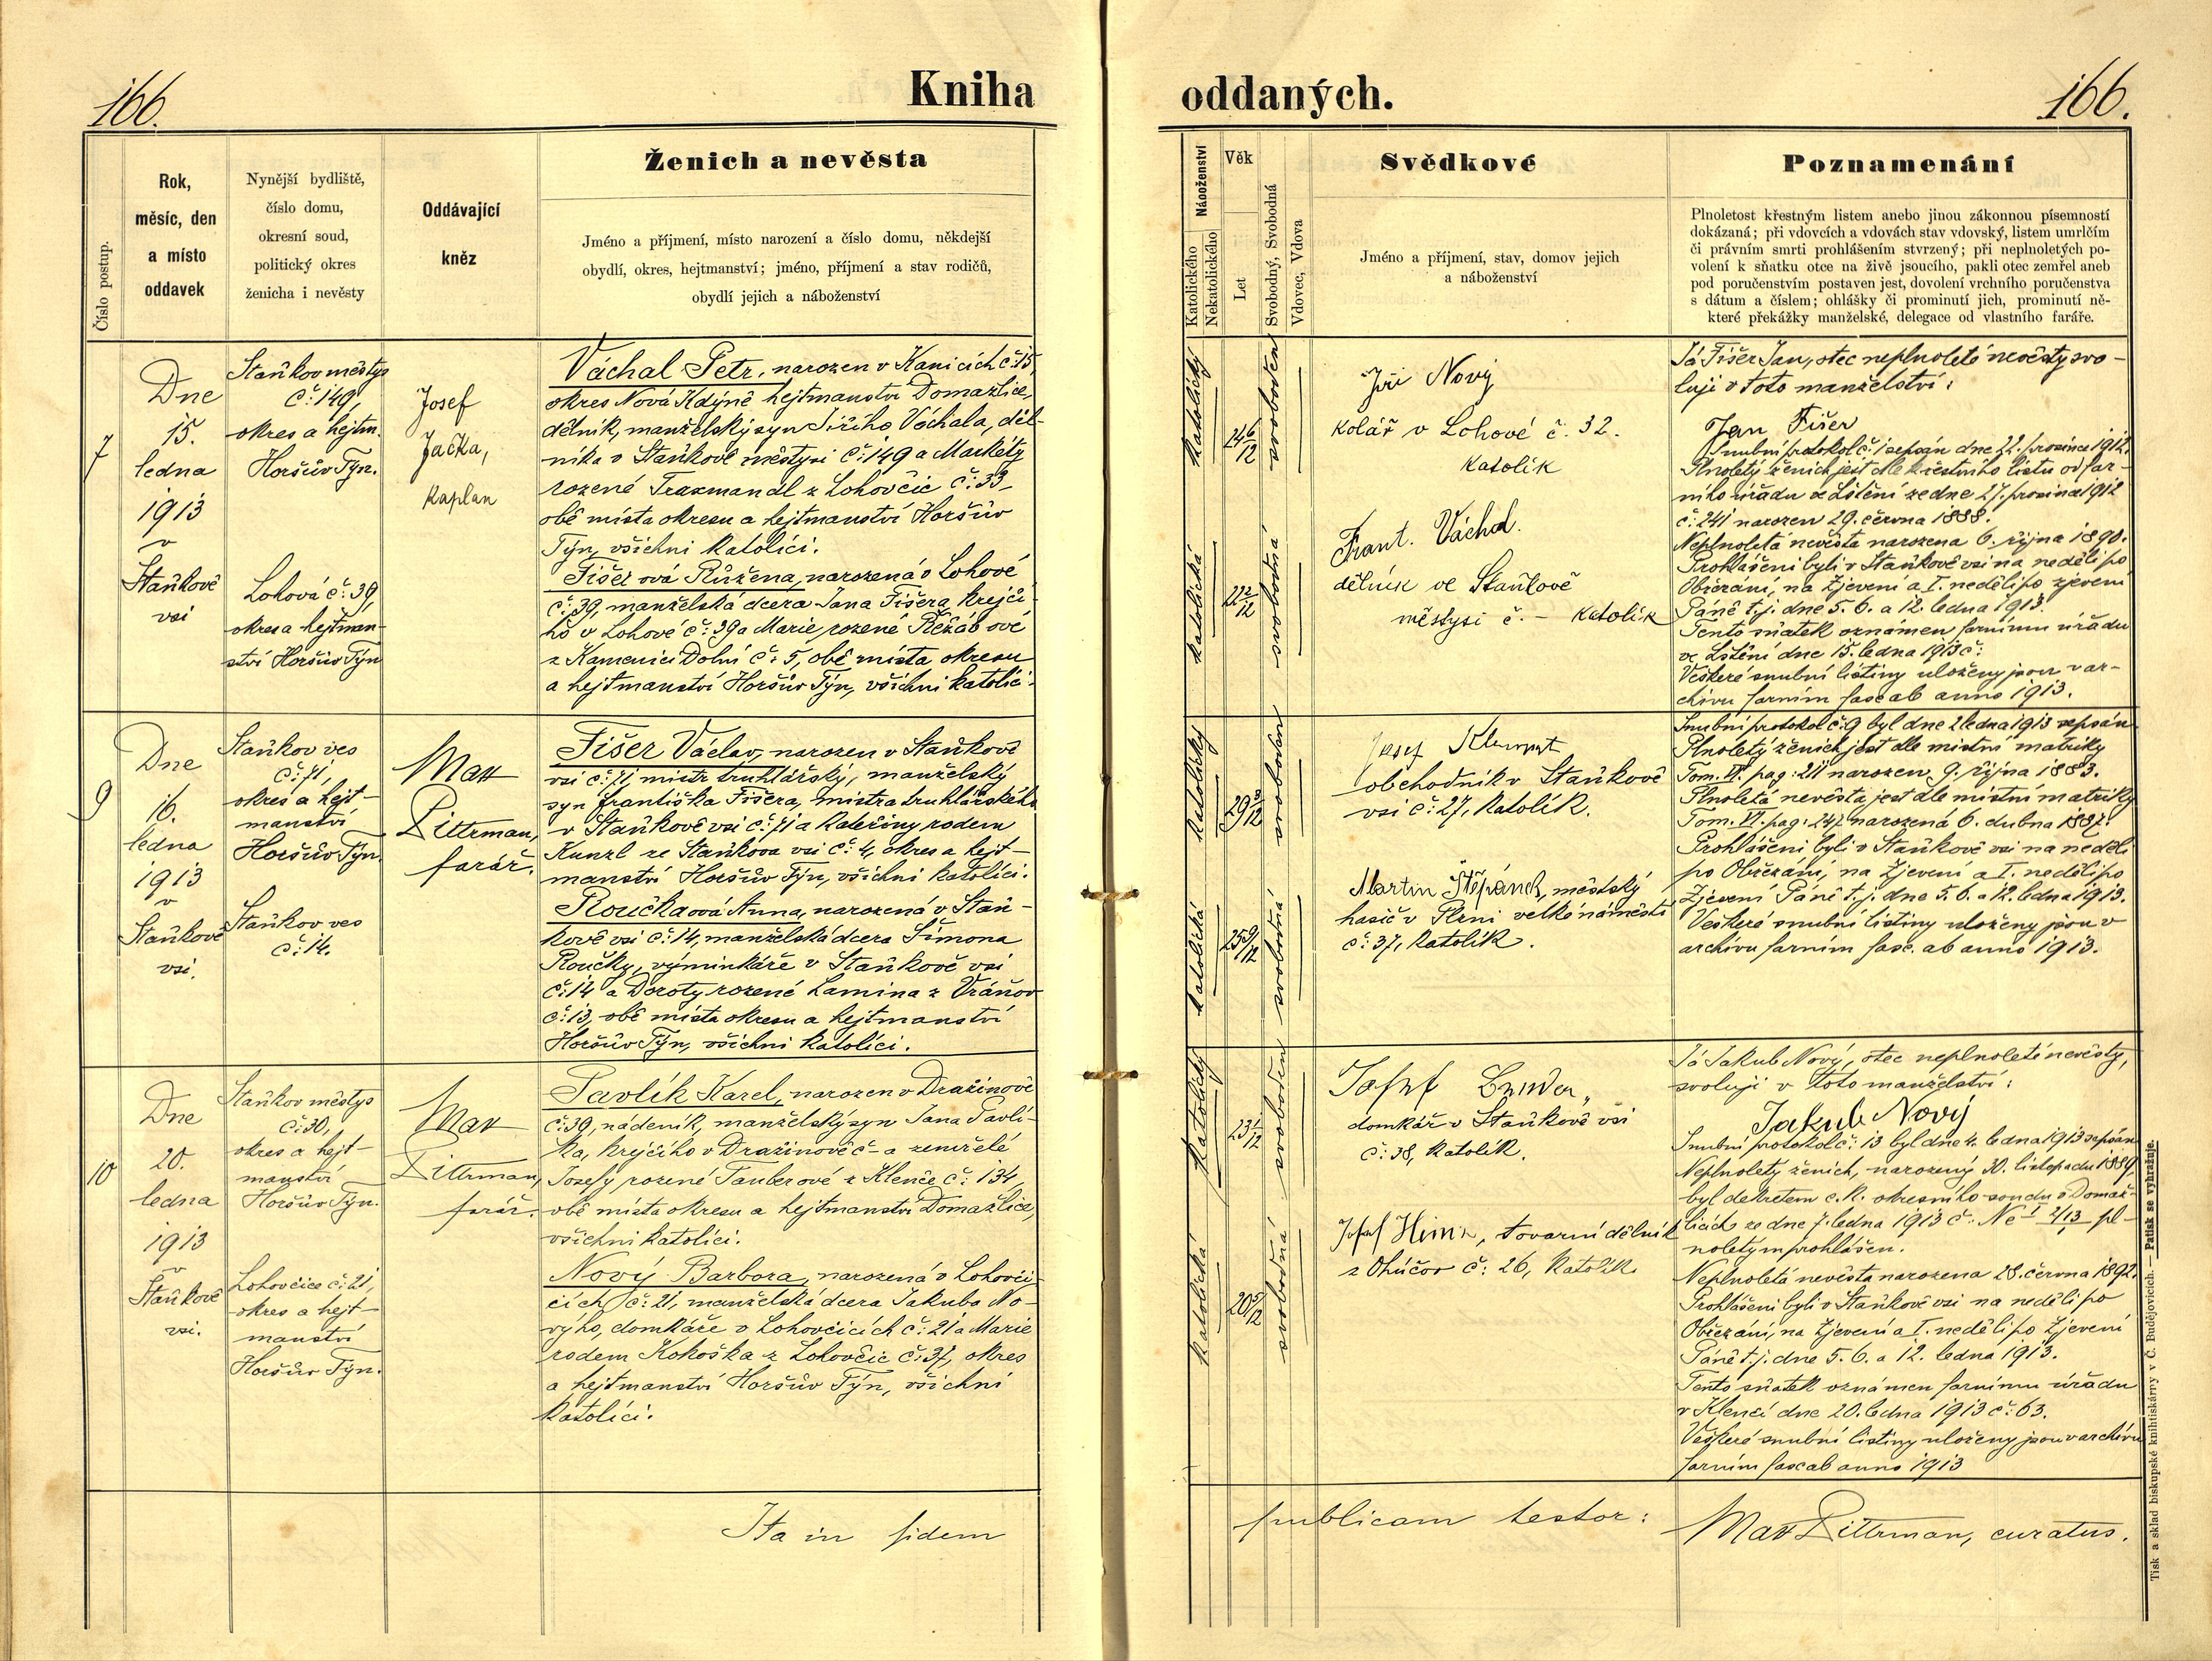 166.
Kniha
Číslo postup.
Rok,
měsíc, den
a místo
oddavek
Nynější bydliště,
číslo domu,
okresní soud,
politický okres
ženicha i nevěsty
Oddávající
kněz
Ženich a nevěsta
Jméno a příjmení, místo narození a číslo domu, někdejší
obydlí, okres, hejtmanství; jméno, příjmení a stav rodičů,
obydlí jejich a náboženství
7
Dne
15.
ledna
1913
v
Staňkově
vsi
Staňkov městys
č: 149,
okres a hejtm.
Horšův Týn.
Lohová č: 39,
okres a hejtman-
ství Horšův Týn
Josef
Jačka,
kaplan
Váchal Petr, narozen v Kanicích č: 15,
okres Nová Kdyně hejtmanství Domažlice,
dělník, manželský syn Jiřího Váchala, děl-
níka v Staňkově městysi č: 149 a Markéty
rozené Traxmandl z Lohovčic č: 33,
obě místa okresu a hejtmanství Horšův
Týn, všichni katolíci.
Fišerová Růžena, narozená v Lohové
č: 39, manželská dcera Jana Fišera, krejčí-
ho v Lohové č: 39 a Marie rozené Řežábové
z Kamenici Dolní č: 5, obě místa okresu
a hejtmanství Horšův Týn, všichni katolíci.
9
Dne
16.
ledna
1913
v
Staňkově
vsi.
Staňkov ves
č: 71,
okres a hejt-
manství
Horšův Týn.
Staňkov ves
č: 14.
Max
Pittrman,
farář.
Fišer Václav, narozen v Staňkově
vsi č: 71 mistr truhlářský, manželský
syn Františka Fišera, mistra truhlářského
v Staňkově vsi č: 71 a Kateřiny rodem
Kunzl ze Staňkova vsi č: 4, okres a hejt-
manství Horšův Týn, všichni katolíci.
Roučkaová Anna, narozená v Staň-
kově vsi č: 14, manželská dcera Šimona
Roučky, výminkáře v Staňkově vsi
č: 14 a Doroty rozené Lamina z Vráňov
č: 13, obě místa okresu a hejtmanství
Horšův Týn, všichni katolíci.
10
Dne
20.
ledna
1913
v
Staňkově
vsi.
Staňkov městys
č: 30,
okres a hejt-
manství
Horšův Týn.
Lohovčice č: 21,
okres a hejt-
manství
Horšův Týn.
Max
Pittrman,
farář.
Pavlík Karel, narozen v Dražinově
č: 39, nádeník, manželský syn Jana Pavlí-
ka, krejčího v Dražinově č - a zemřelé
Josefy rozené Tauberové z Klenče č: 134,
obě místa okresu a hejtmanství Domažlice,
všichni katolíci.
Nový Barbora, narozená v Lohovči-
cích č: 21, manželská dcera Jakuba No-
výho, domkáře v Lohovčicích č: 21 a Marie
rodem Kokoška z Lohovčic č: 37, okres
a hejtmanství Horšův Týn, všichni
katolíci.
Ita in fidem
oddaných.
166.
Náboženství
Katolického
Nekatolického
Věk
Let
Svobodný, Svobodná
Vdovec, Vdova
Svědkové
Jméno a příjmení, stav, domov jejich
a náboženství
Poznamenání
Plnoletost křestným listem anebo jinou zákonnou písemností
dokázaná; při vdovcích a vdovách stav vdovský, listem umrlčím
či právním smrti prohlášením stvrzený; při neplnoletých po-
volení k sňatku otce na živě jsoucího, pakli otec zemřel aneb
pod poručenstvím postaven jest, dovolení vrchního poručenstva
s dátum a číslem; ohlášky či prominutí jich, prominutí ně-
které překážky manželské, delegace od vlastního faráře.
katolický
24 6/12
svoboden
katolická
22 2/12
svobodná
Jiří Nový
kolář v Lohové č. 32.
katolík
Frant. Váchal.
dělník ve Staňkově
městysi č. - katolík
Já Fišer Jan, otec neplnoleté nevěsty svo-
luji v toto manželství:
Jan Fišer
Snubní protokol č: 1 sepsán dne 22. prosince 1912.
Plnoletý ženich jest dle křestního listu od far-
ního úřadu ve Lštění ze dne 27. prosince 1912
č: 241 narozen 29. června 1888.
Neplnoletá nevěsta narozena 6. října 1890.
Prohlášeni byli v Staňkově vsi na neděli po
Obřezání, na Zjevení a I. neděli po zjevení
Páně t.j. dne 5. 6. a 12. ledna 1913.
Tento sňatek oznámen farnímu úřadu
ve Lštění dne 15. ledna 1913 č:
Veškeré snubní listiny uloženy jsou v ar-
chivu farním fasc ab anno 1913.
katolický
29 3/12
svoboden
katolická
25 9/12
svobodná
Josef
obchodník v Staňkově
vsi č: 27, katolík.
Martin Štěpánek, městský
hasič v Plzni velké náměstí
č: 37, katolík.
Snubní protokol č: 9 byl dne 2 ledna 1913 sepsán
Plnoletý ženich jest dle místní matriky
Tom. VI. pag: 211 narozen 9. října 1883.
Plnoletá nevěsta jest dle místní matriky
Tom. VI. pag: 247 narozená 6. dubna 1887.
Prohlášeni byli v Staňkově vsi na neděli
po Obřezání, na Zjevení a I. neděli po
Zjevení Páně t.j. dne 5. 6. a 12. ledna 1913.
Veškeré snubní listiny uloženy jsou v
archivu farním fasc. ab anno 1913.
katolický
23 1/12
svoboden
katolická
20 5/12
svobodná
Josef
domkář v Staňkově vsi
č: 38, katolík.
Josef, tovární dělník
z Ohúčov č: 26, katolík
Já Jakub Nový, otec neplnoleté nevěsty,
svoluji v toto manželství:
Jakub Nový
Snubní protokol č: 13 byl dne 4. ledna 1913 sepsán
Neplnoletý ženich, narozený 30. listopadu 1889
byl dekretem c. k. okresního soudu v Domaž-
licích ze dne 7. ledna 1913 č: Nc I 2/13 pl-
noletým prohlášen.
Neplnoletá nevěsta narozena 28. června 1892.
Prohlášeni byli v Staňkově vsi na neděli po
Obřezání, na Zjevení a I. neděli po Zjevení
Páně t.j. dne 5. 6. a 12. ledna 1913.
Tento sňatek oznámen farnímu úřadu
v Klenčí dne 20. ledna 1913 č: 63.
Veškeré snubní listiny uloženy jsou v archivu
farním fasc ab anno 1913
publicam testor:
Max Pittrman, curatus.
Tisk a sklad biskupské knihtiskárny v Č. Budějovicích. — Patisk se vyhražuje.